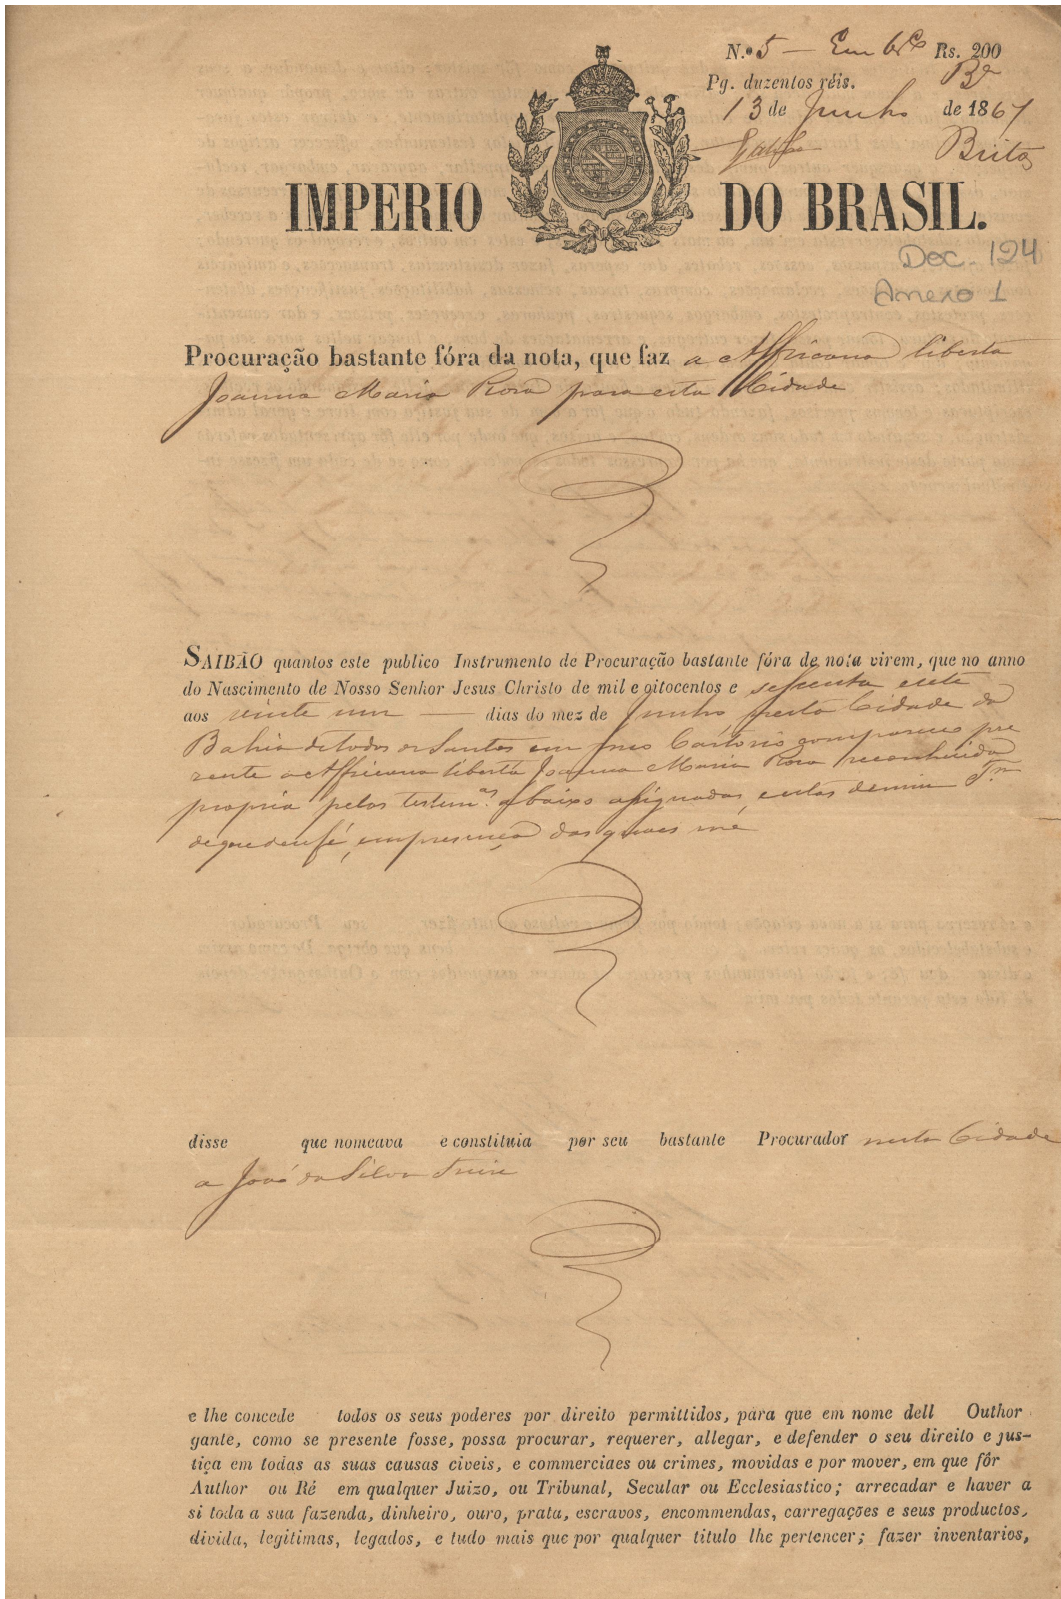 N.º 5 — Rs. 200
Pg. duzentos réis. Bª
13 de Junho de 1867
Galvão Brito
IMPERIO DO BRASIL.
Doc. 124
Anexo 1
Procuração bastante fóra da nota, que faz a Affricana liberta
Joanna Maria Rosa para esta Cidade
SAIBÃO quantos este publico Instrumento de Procuração bastante fóra de nota virem, que no anno
do Nascimento de Nosso Senhor Jesus Christo de mil e oitocentos e sessenta e sete
aos vinte um — dias do mez de Junho nesta Cidade da
Bahia de todos os Santos em meo Cartorio compareceo pre
zente a Affricana liberta Joanna Maria Rosa reconhecida
propria pelas testem.as abaixo assignadas, e estas de mim T.am
de que dou fé, em presença das quaes me
disse que nomeava e constituia por seu bastante Procurador nesta Cidade
a João da Silva Freire
e lhe concede todos os seus poderes por direito permittidos, para que em nome dell Outhor
gante, como se presente fosse, possa procurar, requerer, allegar, e defender o seu direito e jus-
tiça em todas as suas causas civeis, e commerciaes ou crimes, movidas e por mover, em que fôr
Author ou Ré em qualquer Juizo, ou Tribunal, Secular ou Ecclesiastico; arrecadar e haver a
si toda a sua fazenda, dinheiro, ouro, prata, escravos, encommendas, carregações e seus productos,
divida, legitimas, legados, e tudo mais que por qualquer titulo lhe pertencer; fazer inventarios,